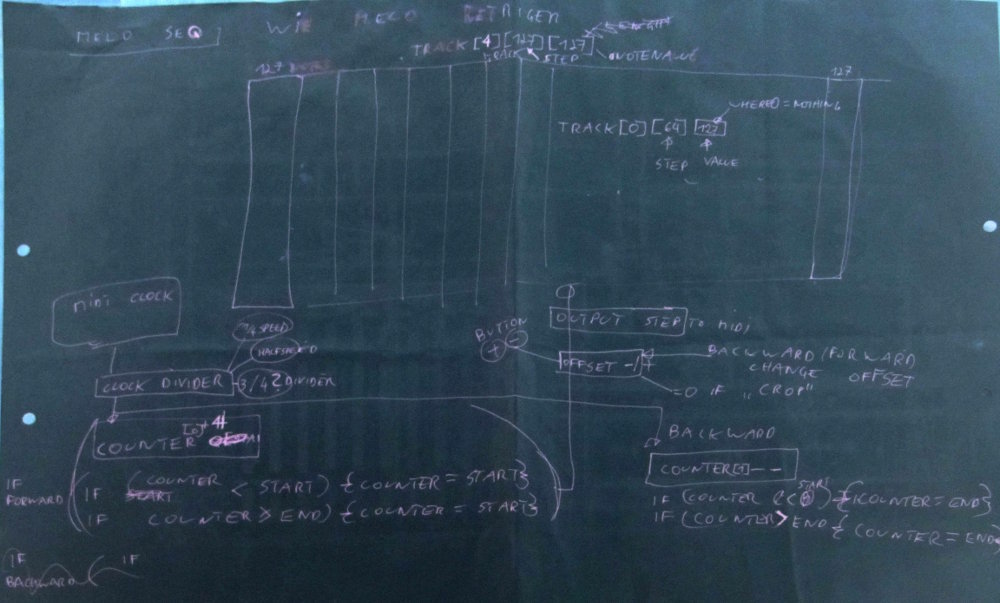 MELO SEQ
TRACK [4] [127] [127]
TRACK STEP NOTEVALUE
127
127
WHERE 0 = NOTHING
TRACK [0] [64] [127]
STEP VALUE
MIDI CLOCK
3/4 SPEED
HALFSPEED
CLOCK DIVIDER
3/4 ? DIVIDER
BUTTON
+ -
OUTPUT STEP TO MIDI
OFFSET -/+
BACKWARD/FORWARD
CHANGE OFFSET
=0 IF „CROP"
COUNTER
BACKWARD
IF
FORWARD
IF (COUNTER < START) {COUNTER = START}
START
IF COUNTER > END) {COUNTER = START}
IF
BACKWARD ( IF
START
IF (COUNTER < ) {COUNTER = END}
IF (COUNTER > END {COUNTER = END